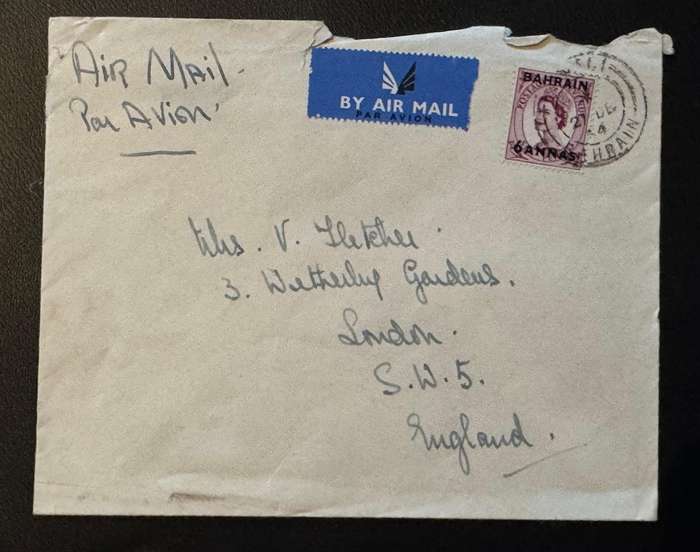 'AIR MAIL.
Par AVION'
BY AIR MAIL
PAR AVION
BAHRAIN
POSTAGE
6 ANNAS
21 DE
54
BAHRAIN
Mrs. V. Fletcher.
3. Wetherby Gardens.
London.
S.W.5.
England.